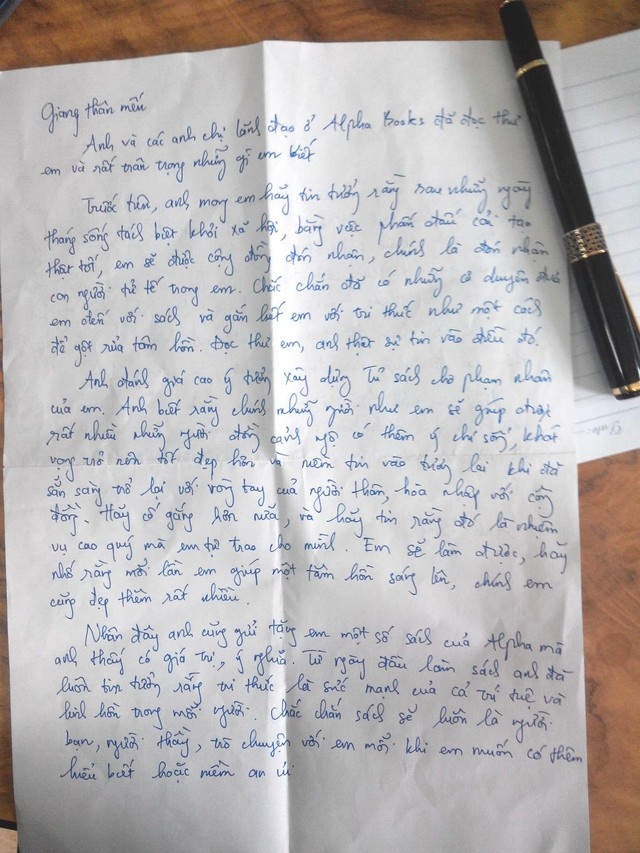 Giang thân mến
Anh và các anh chị lãnh đạo ở Alpha Books đã đọc thư
em và rất trân trọng những gì em biết
Trước tiên, anh mong em hãy tin tưởng rằng sau những ngày
tháng sống tách biệt khỏi xã hội, bằng việc phấn đấu cải tạo
thật tốt, em sẽ được cộng đồng đón nhận, chính là đón nhận
con người tử tế trong em. Chắc chắn đã có những cơ duyên đưa
em đến với sách và gắn kết em với tri thức như một cách
để gột rửa tâm hồn. Đọc thư em, anh thật sự tin vào điều đó.
Anh đánh giá cao ý tưởng xây dựng Tủ sách cho phạm nhân
của em. Anh biết rằng chính những người như em sẽ giúp được
rất nhiều những người đồng cảnh ngộ có thêm ý chí sống, khát
vọng trở nên tốt đẹp hơn và niềm tin vào tương lai khi đã
sẵn sàng trở lại với vòng tay của người thân, hòa nhập với cộng
đồng. Hãy cố gắng hơn nữa, và hãy tin rằng đó là nhiệm
vụ cao quý mà em tự trao cho mình. Em sẽ làm được, hãy
nhớ rằng mỗi lần em giúp một tâm hồn sáng lên, chính em
cũng đẹp thêm rất nhiều.
Nhân đây anh cũng gửi tặng em một số sách của Alpha mà
anh thấy có giá trị, ý nghĩa. Từ ngày đầu làm sách anh đã
luôn tin tưởng rằng tri thức là sức mạnh của cả trí tuệ và
linh hồn trong mỗi người. Chắc chắn sách sẽ luôn là người
bạn, người thầy, trò chuyện với em mỗi khi em muốn có thêm
hiểu biết hoặc niềm an ủi